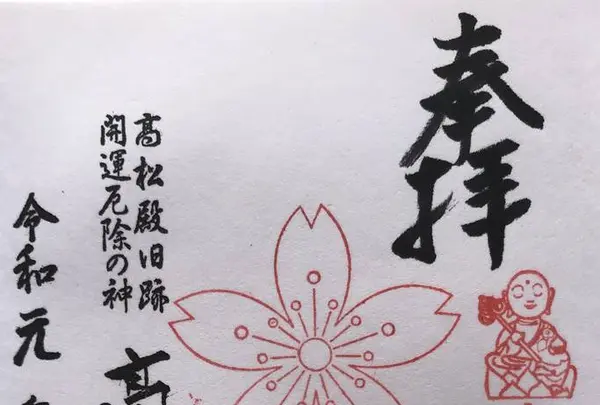 奉拝
高松殿旧跡
開運厄除の神
高
令和元